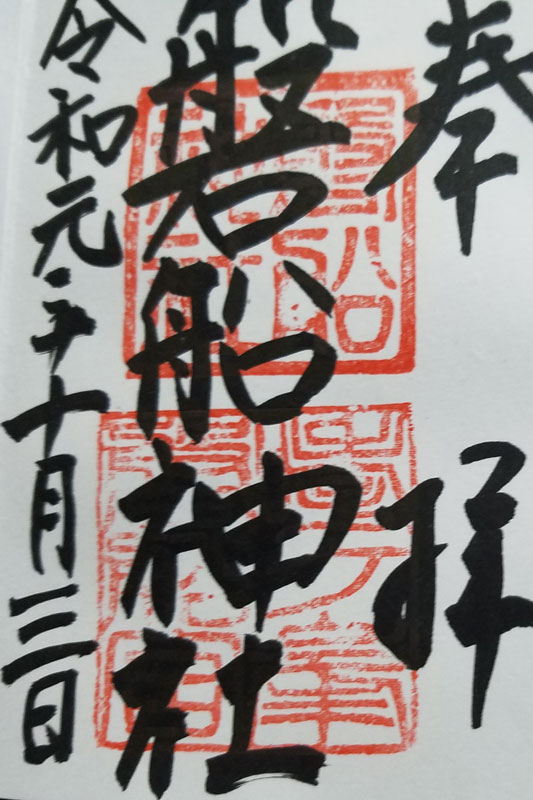 奉拝
磐船神社
令和元年十月三日